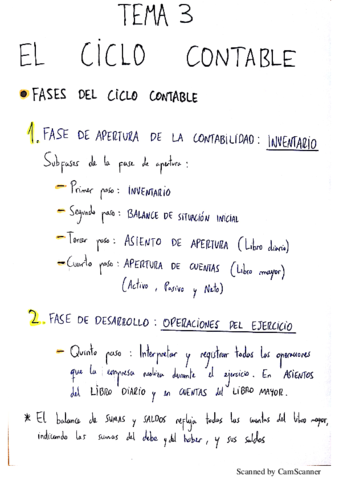 TEMA 3
EL CICLO CONTABLE
• FASES DEL CICLO CONTABLE
1. FASE DE APERTURA DE LA CONTABILIDAD: INVENTARIO
Subfases de la fase de apertura:
– Primer paso: INVENTARIO
– Segundo paso: BALANCE DE SITUACIÓN INICIAL
– Tercer paso: ASIENTO DE APERTURA (Libro diario)
– Cuarto paso: APERTURA DE CUENTAS (Libro mayor)
(Activo, Pasivo y Neto)
2. FASE DE DESARROLLO: OPERACIONES DEL EJERCICIO
– Quinto paso: Interpretar y registrar todas las operaciones
que la empresa realiza durante el ejercicio. En ASIENTOS
del LIBRO DIARIO y en CUENTAS del LIBRO MAYOR.
* El balance de SUMAS y SALDOS refleja todas las cuentas del libro mayor,
indicando las sumas del debe y del haber, y sus saldos
Scanned by CamScanner